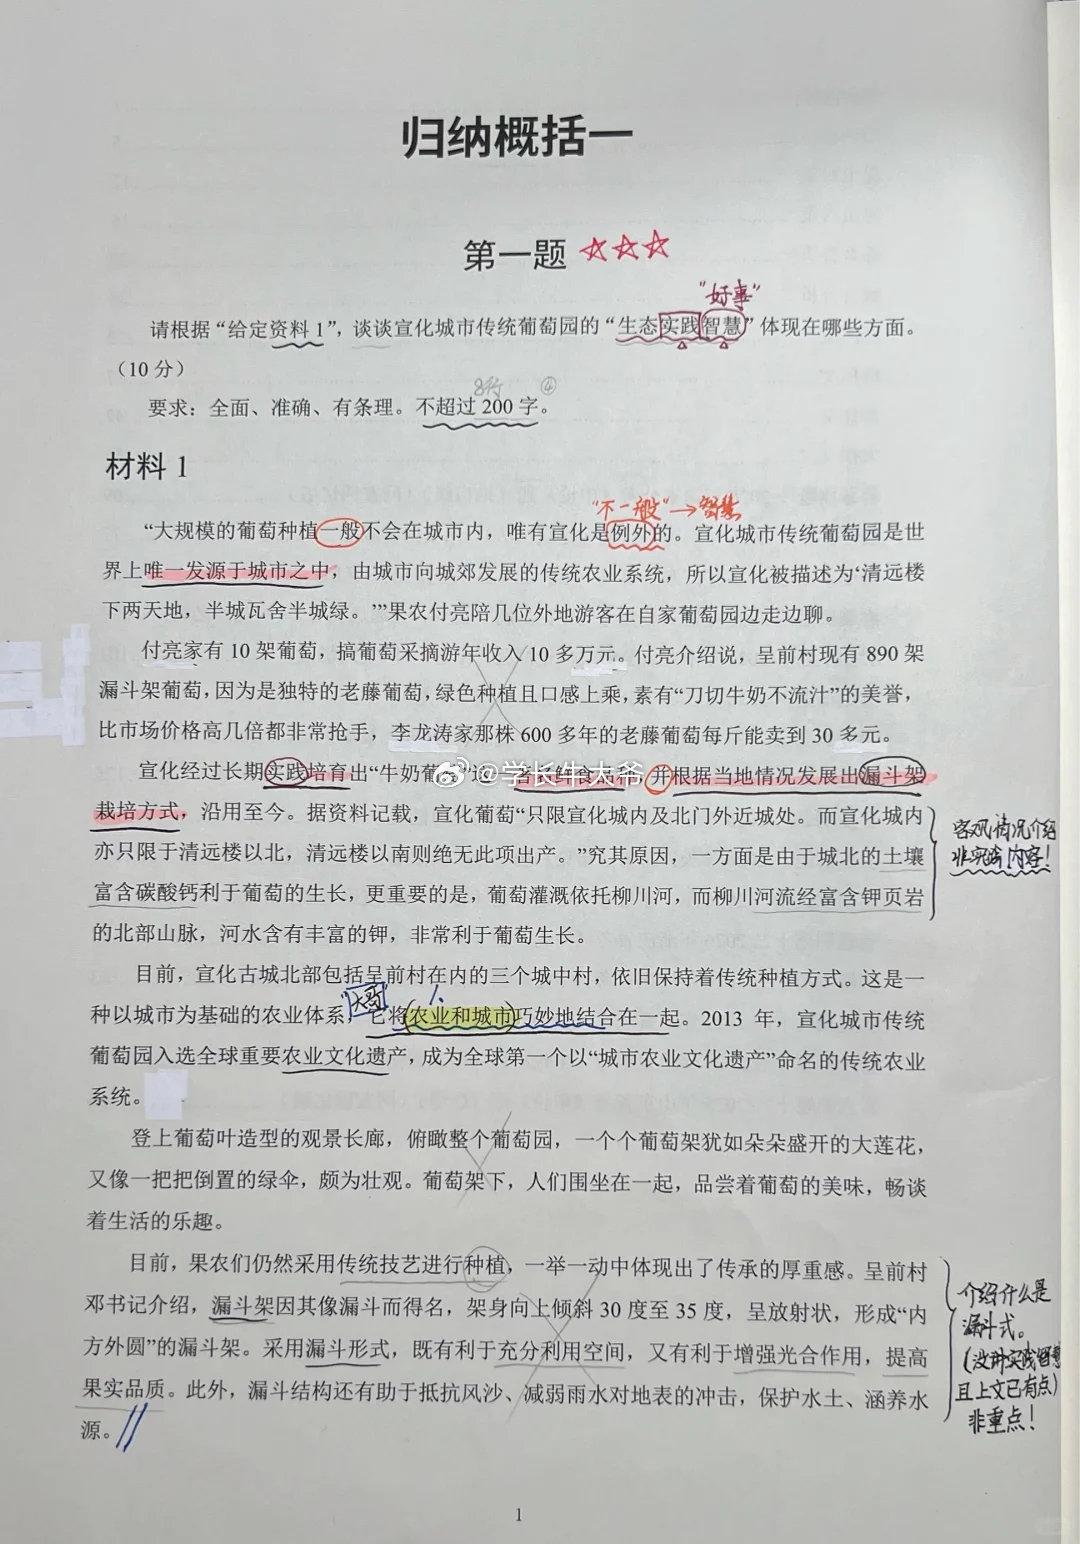 归纳概括一
第一题 ☆☆☆
"好事"
请根据“给定资料 1”，谈谈宣化城市传统葡萄园的“生态实践智慧”体现在哪些方面。
（10 分）
8行 ④
要求：全面、准确、有条理。不超过 200 字。
材料 1
"不一般"→智慧
“大规模的葡萄种植一般不会在城市内，唯有宣化是例外的。宣化城市传统葡萄园是世
界上唯一发源于城市之中，由城市向城郊发展的传统农业系统，所以宣化被描述为‘清远楼
下两天地，半城瓦舍半城绿。’”果农付亮陪几位外地游客在自家葡萄园边走边聊。
付亮家有 10 架葡萄，搞葡萄采摘游年收入 10 多万元。付亮介绍说，呈前村现有 890 架
漏斗架葡萄，因为是独特的老藤葡萄，绿色种植且口感上乘，素有“刀切牛奶不流汁”的美誉，
比市场价格高几倍都非常抢手，李龙涛家那株 600 多年的老藤葡萄每斤能卖到 30 多元。
宣化经过长期实践培育出“牛奶葡萄”这一著名鲜食品种，并根据当地情况发展出漏斗架
@学长牛大爷
栽培方式，沿用至今。据资料记载，宣化葡萄“只限宣化城内及北门外近城处。而宣化城内
亦只限于清远楼以北，清远楼以南则绝无此项出产。”究其原因，一方面是由于城北的土壤
富含碳酸钙利于葡萄的生长，更重要的是，葡萄灌溉依托柳川河，而柳川河流经富含钾页岩
的北部山脉，河水含有丰富的钾，非常利于葡萄生长。
客观情况介绍
非实践内容！
目前，宣化古城北部包括呈前村在内的三个城中村，依旧保持着传统种植方式。这是一
"大哥"
种以城市为基础的农业体系，它将农业和城市巧妙地结合在一起。2013 年，宣化城市传统
葡萄园入选全球重要农业文化遗产，成为全球第一个以“城市农业文化遗产”命名的传统农业
系统。
登上葡萄叶造型的观景长廊，俯瞰整个葡萄园，一个个葡萄架犹如朵朵盛开的大莲花，
又像一把把倒置的绿伞，颇为壮观。葡萄架下，人们围坐在一起，品尝着葡萄的美味，畅谈
着生活的乐趣。
目前，果农们仍然采用传统技艺进行种植，一举一动中体现出了传承的厚重感。呈前村
邓书记介绍，漏斗架因其像漏斗而得名，架身向上倾斜 30 度至 35 度，呈放射状，形成“内
方外圆”的漏斗架。采用漏斗形式，既有利于充分利用空间，又有利于增强光合作用，提高
果实品质。此外，漏斗结构还有助于抵抗风沙、减弱雨水对地表的冲击，保护水土、涵养水
源。
介绍什么是
漏斗式。
（没种实践智慧
且上文已有点）
非重点！
1